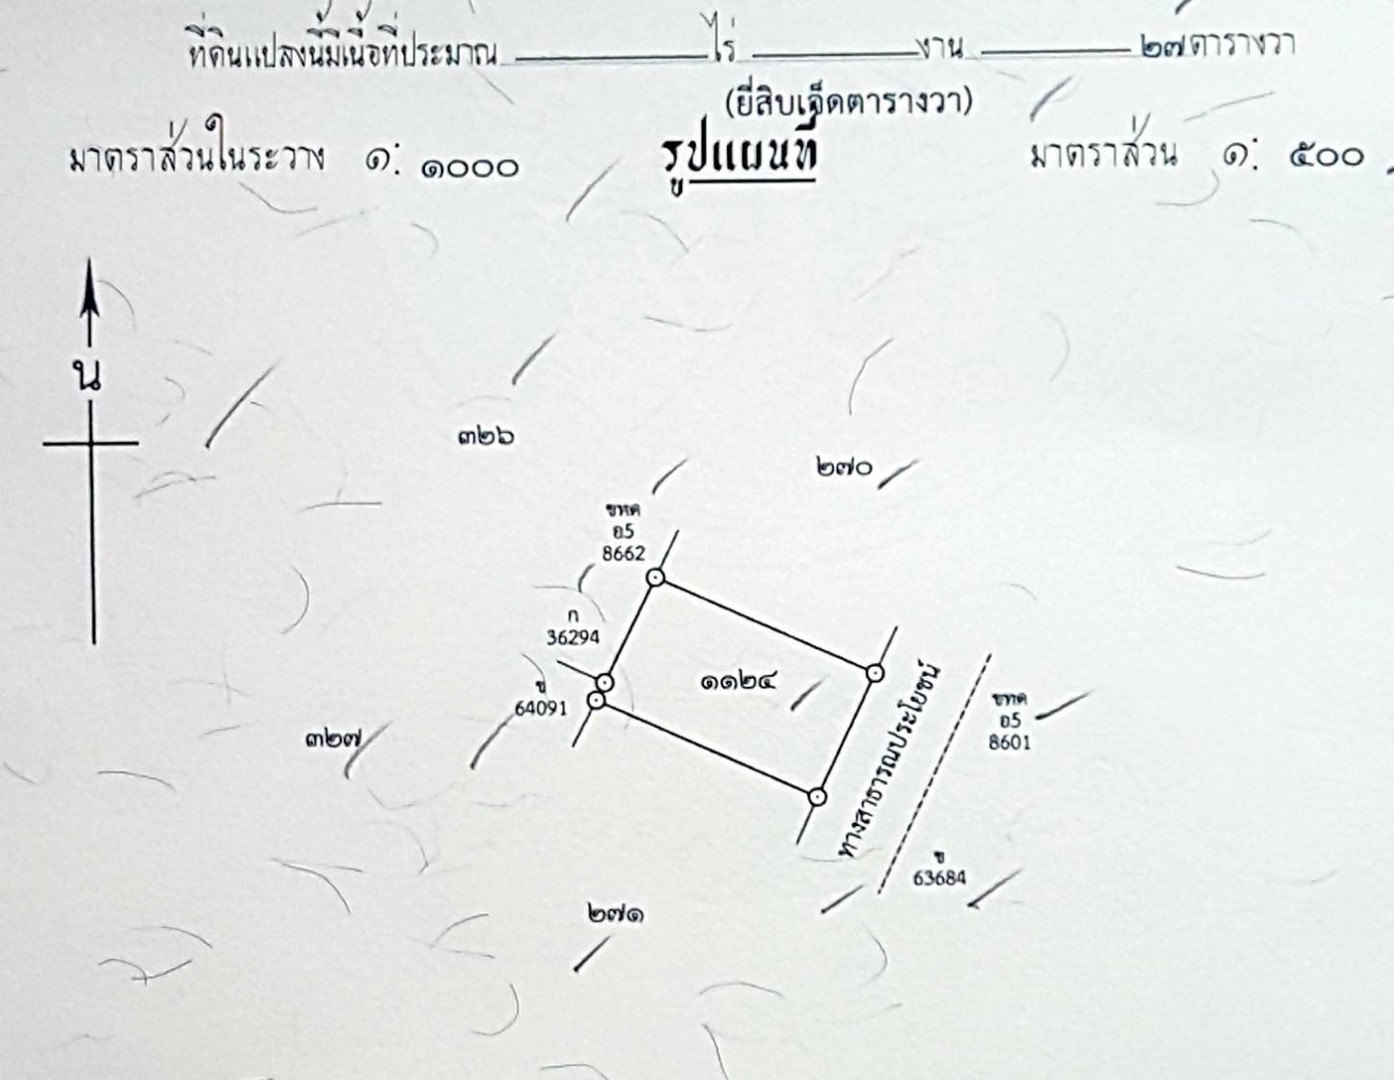 ที่ดินแปลงนี้มีเนื้อที่ประมาณ ไร่ งาน ๒๗ ตารางวา
(ยี่สิบเจ็ดตารางวา)
มาตราส่วนในระวาง ๑: ๑๐๐๐ รูปแผนที่ มาตราส่วน ๑: ๕๐๐
น
๓๒๖
๒๗๐
ขหด
อ5
8662
ก
36294
ข
64091
๑๑๒๔
ทางสาธารณประโยชน์
ขหด
อ5
8601
๓๒๗
ข
63684
๒๗๑